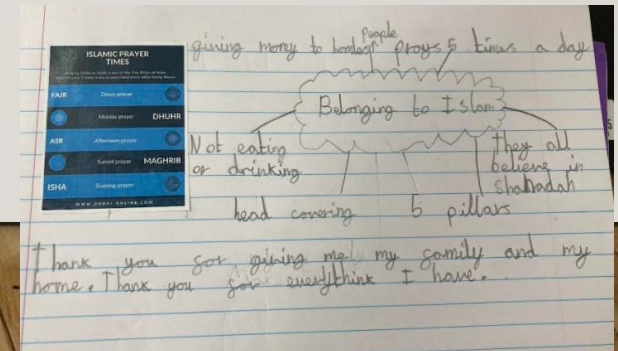 ISLAMIC PRAYER
TIMES
FAJR Dawn prayer
Midday prayer DHUHR
ASR Afternoon prayer
Sunset prayer MAGHRIB
ISHA Evening prayer
WWW.DUBAI-ONLINE.COM
People
giving money to homless prays 5 times a day
Belonging to Islam
Not eating
or drinking
they all
believe in
shahadah
head covering
5 pillars
Thank you for giving me my family and my
home. Thank you for everythink I have.